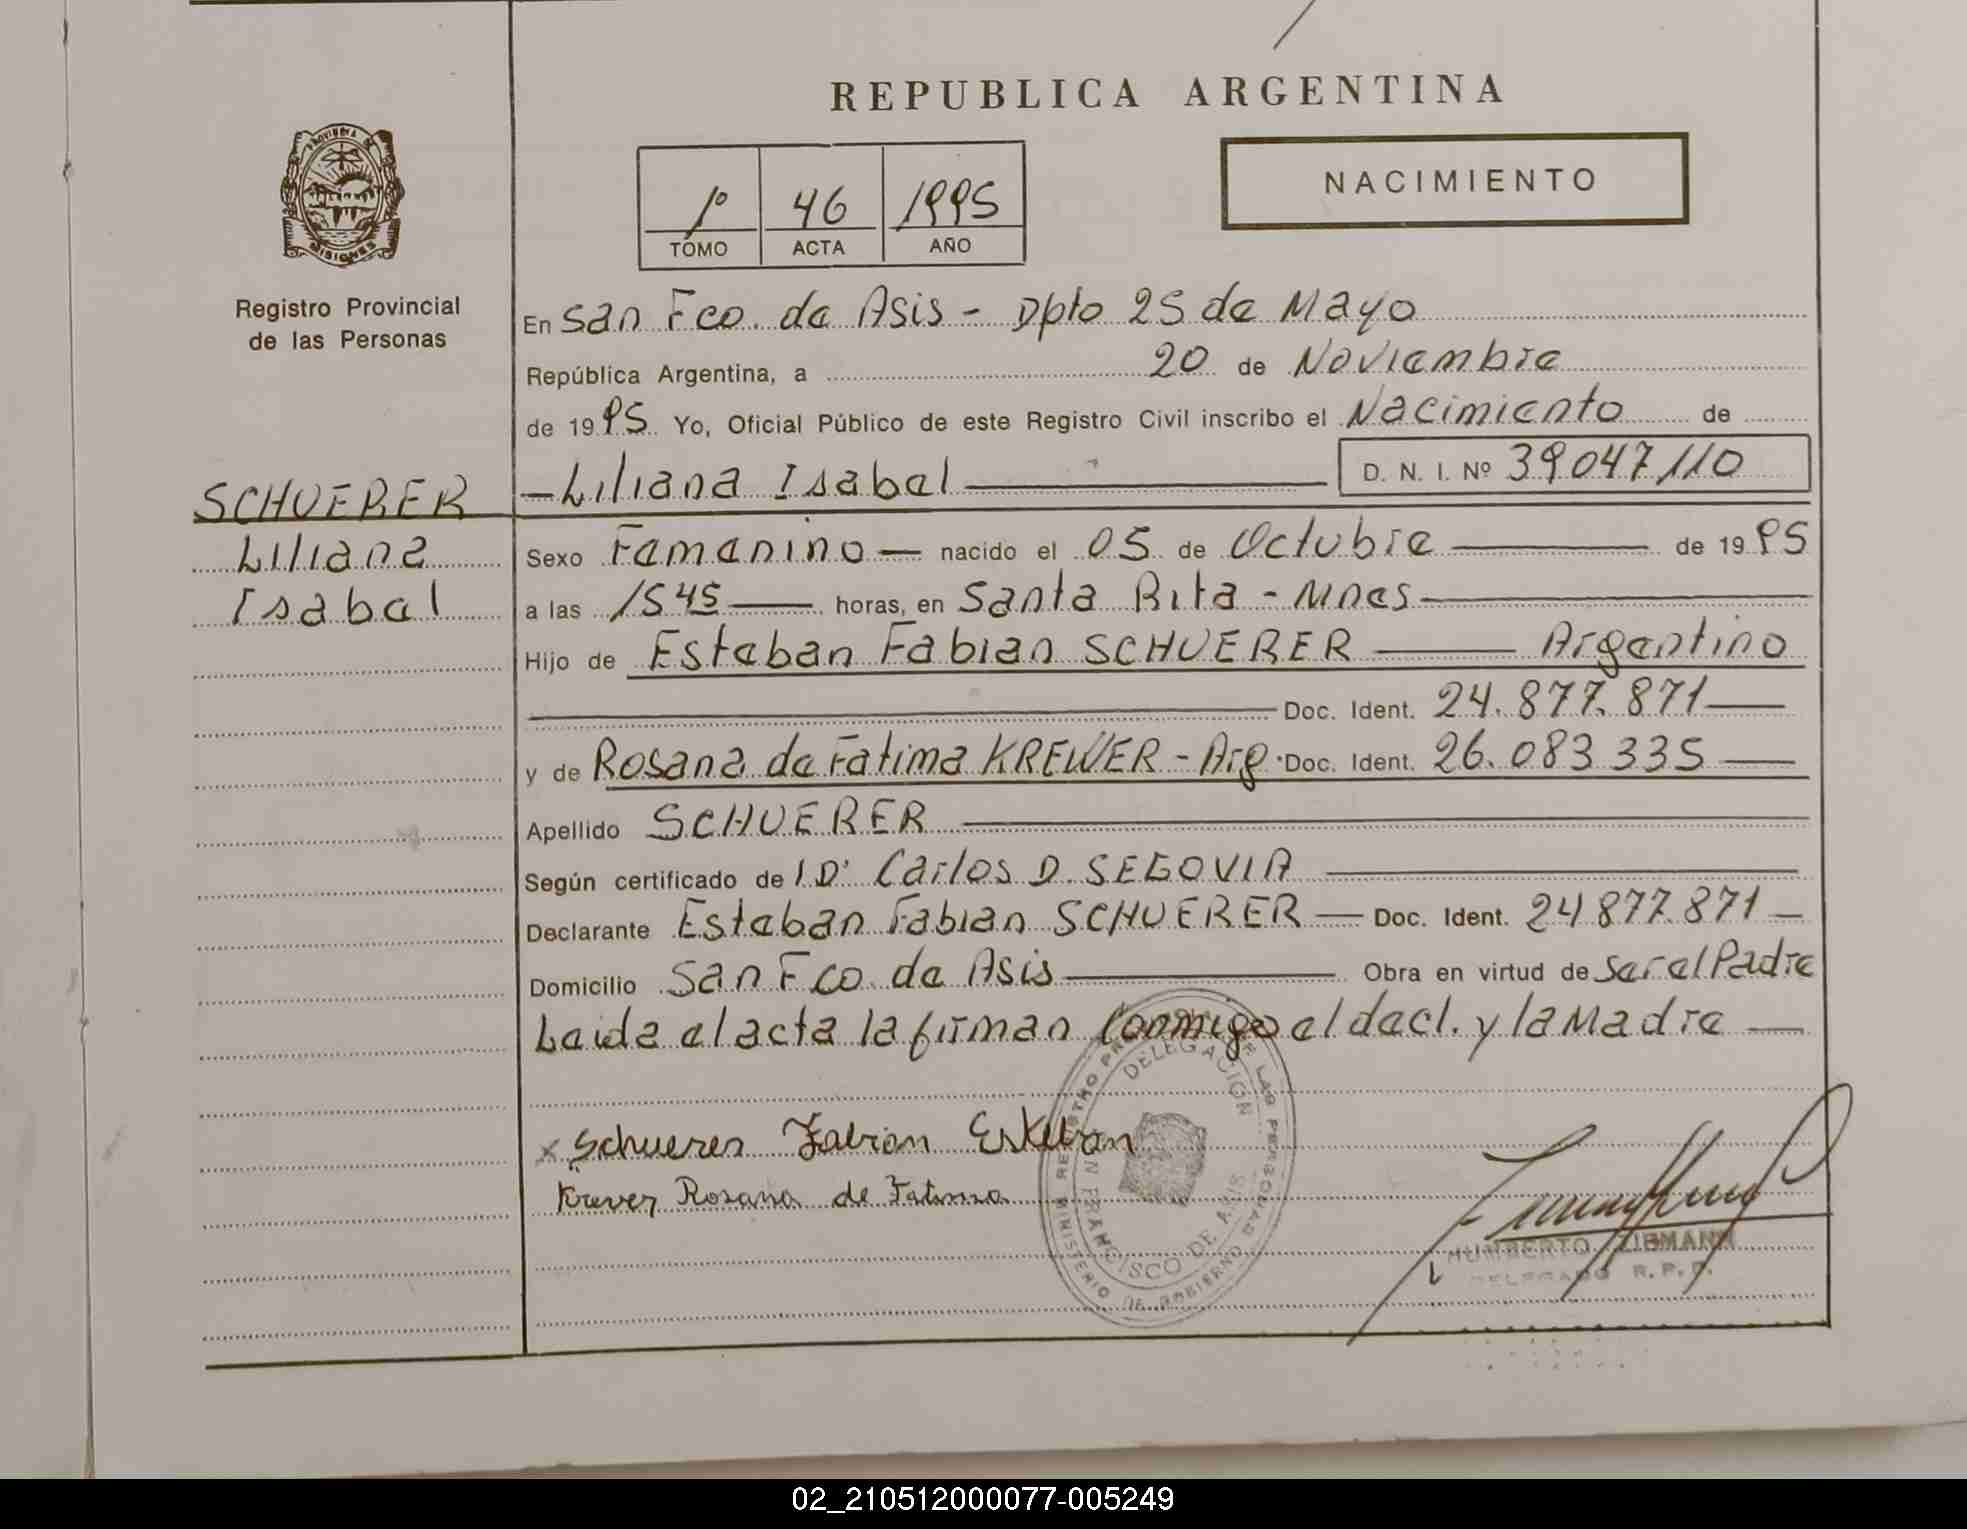 REPUBLICA ARGENTINA
PROVINCIA DE MISIONES
Registro Provincial
de las Personas
1º 46 1995
TOMO ACTA AÑO
NACIMIENTO
En San Fco. de Asis - Dpto 25 de Mayo
República Argentina, a 20 de Noviembre
de 1995 Yo, Oficial Público de este Registro Civil inscribo el Nacimiento de
- Liliana Isabel D. N. I. Nº 39.047.110
SCHUERER
Liliana
Isabel
Sexo Femenino — nacido el 05 de Octubre de 1995
a las 1545 horas, en Santa Rita - Mnes
Hijo de Esteban Fabian SCHUERER — Argentino
Doc. Ident. 24.877.871
y de Rosana de Fatima KREWER - Arg. Doc. Ident. 26.083.335
Apellido SCHUERER
Según certificado de 1 Dr Carlos D. SEGOVIA
Declarante Esteban Fabian SCHUERER — Doc. Ident. 24.877.871
Domicilio San Fco. de Asis Obra en virtud de ser el Padre
Leida el acta la firman Conmigo el decl. y la Madre
x Schuerer Fabian Esteban
Krever Rosana de Fatima
MINISTERIO DE GOBIERNO REGISTRO PROVINCIAL DE LAS PERSONAS
DELEGACION SAN FRANCISCO DE ASIS
HUMBERTO ZIEMANN
DELEGADO R.P.P.
02_210512000077-005249